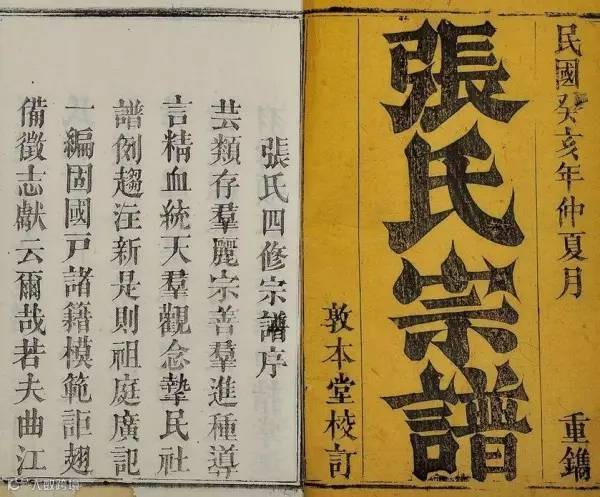 民國癸亥年仲夏月
重鐫
張氏宗譜
敦本堂校訂
張氏四修宗譜序
芸類存羣麗宗善羣進種導
言精血統天羣觀念摯民社
譜例趨注新是則祖庭廣記
一編固國戸諸籍模範詎翅
備徵志獻云爾哉若夫曲江